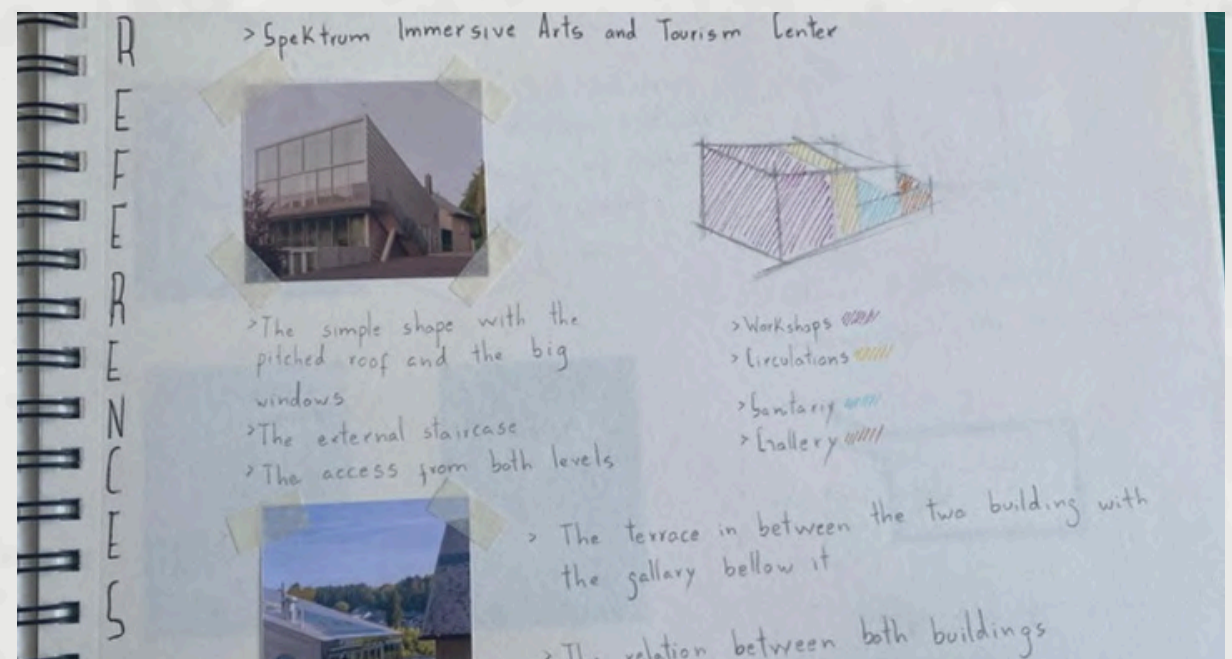 REFERENCES
> Spektrum Immersive Arts and Tourism Center
> The simple shape with the
pitched roof and the big
windows
> The external staircase
> The access from both levels
> Workshops
> Circulations
> Sanitariy
> Gallery
> The terrace in between the two building with
the gallary bellow it
> The relation between both buildings